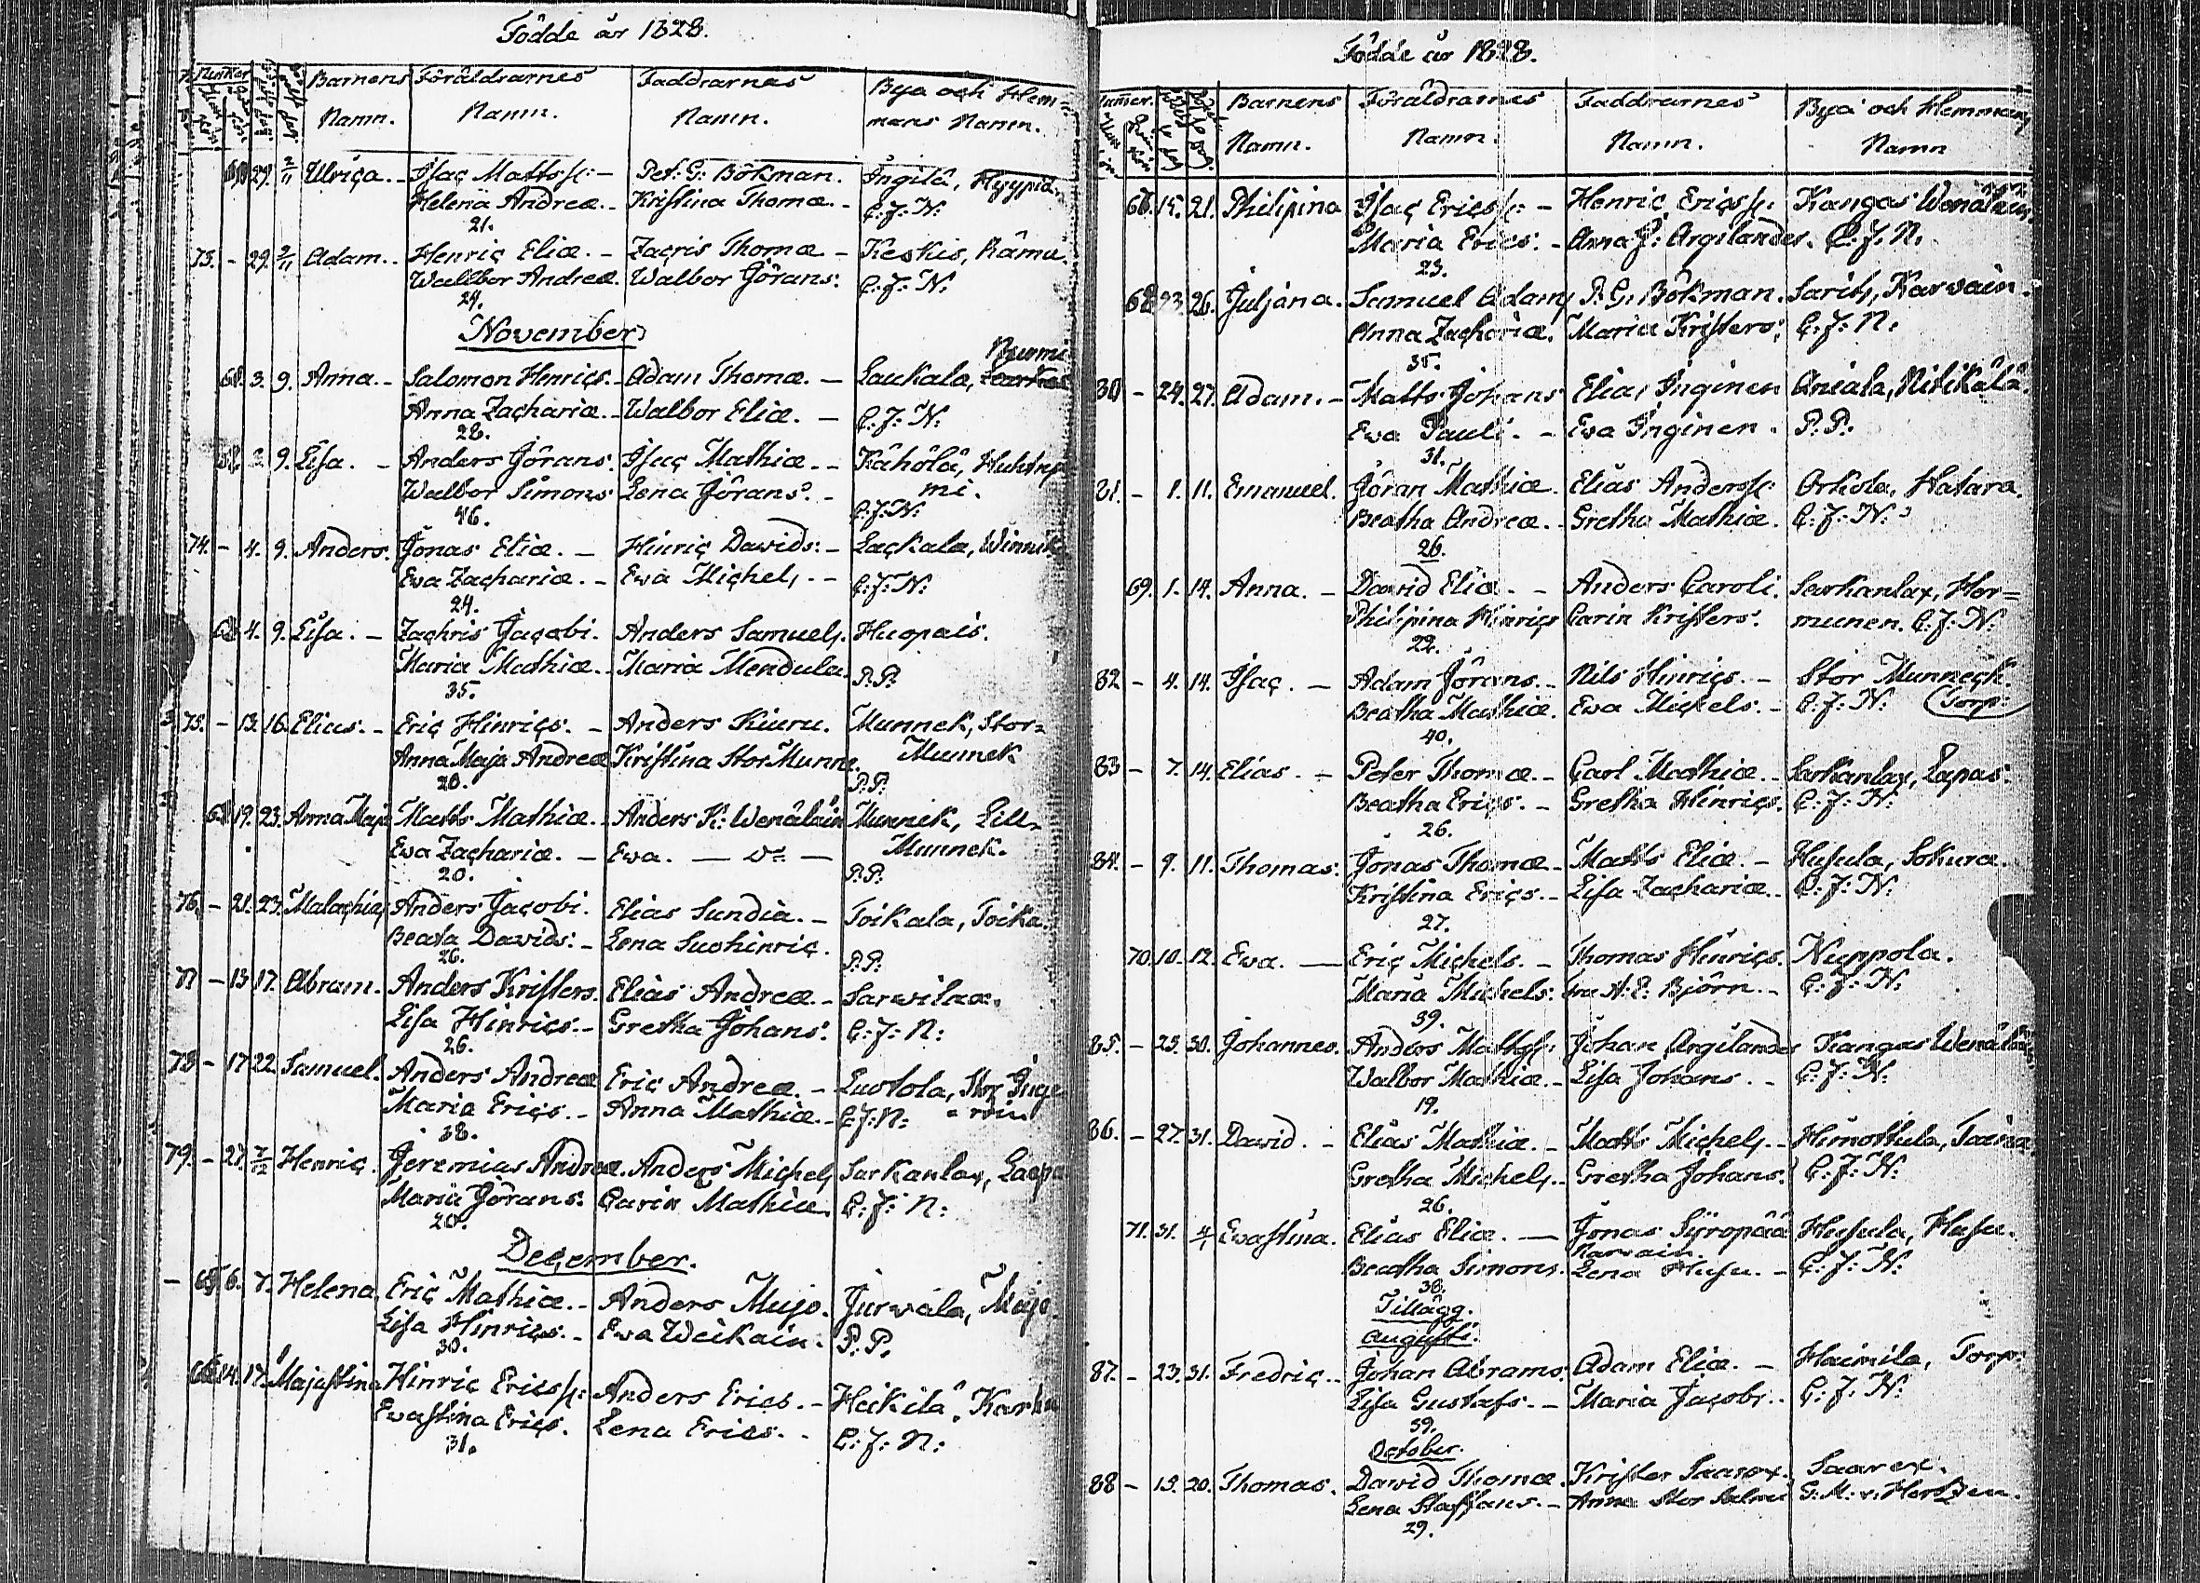 Födde år 1828.
Barnens Namn. Föräldrarnes Namn. Faddrarnes Namn. Bya och Hemmans Namn.
29. 2/11 Ulrica. - Isac Mattss: - Pet: G: Bökman. Ingilä, Hyypiä.
Helena Andreæ. - Kristina Thomæ. - C: J: N:
21.
73. - 29. 2/11 Adam. - Henric Eliæ. - Zacris Thomæ - Keskis, Rämä.
Wallbor Andreæ. Walbor Görans: C: J: N:
24.
November
3. 9. Anna. - Salomon Henrics. - Adam Thomæ. - Laukala, Nurmi
Anna Zachariæ. - Walbor Eliæ. - C: J: N:
28.
9. Lisa. - Anders Görans. Isac Mathiæ. - Kähölä, Huhtnjemi.
Walbor Simons Lena Görans. - C: J: N:
46.
74. - 4. 9. Anders. Jonas Eliæ. - Hinric Davids: - Lackala,
Ewa Zachariæ. - Ewa Michels. - C: J: N:
24.
4. 9. Lisa. - Zachris Jacobi. Anders Samuels. Huopais.
Maria Mathiæ. - Maria Mendula. P.P.
35.
75. - 13. 16. Elias. - Eric Hinrics. - Anders Kiuru. Munnek, Stor=
Anna Maja Andreæ Kristina Stor Munne. Munnek
20. P.P.
19. 23. Anna Maja Matts Mathiæ. - Anders K: Wenäläin Munnek, Lill-
Ewa Zachariæ. - Ewa. - D:o - Munnek.
20. P.P.
76. - 21. 23. Malachias Anders Jacobi. Elias Sundia. - Toikala, Toika.
Beata Davids: - Lena Suohinric. P.P.
26.
77 - 13 17. Abram. Anders Kristers. Elias Andreæ. - Sarvilax.
Lisa Hinrics. - Gretha Johans. C: J: N:
26.
78 - 17 22. Samuel. Anders Andreæ Eric Andreæ. - Eustola, Stor Inge
Maria Erics. - Anna Mathiæ. - C: J: N: = roin
38.
79. - 27. 7/12 Henric. Jeremias Andreæ. Anders Michels Sarkanlax, Laapa
Maria Görans. Carin Mathiæ. C: J: N:
20.
December.
6. 7. Helena Eric Mathiæ. - Anders Mujo. Jurvala, Mujo.
Lisa Hinrics. - Ewa Weikain. P. P.
30.
14. 17. Majastina Hinric Ericss: Anders Erics. - Heikilä, Karhu
Ewastina Erics. Lena Erics. - C: J: N:
31.
Födde år 1828.
Barnens Namn. Föräldrarnes Namn. Faddrarnes Namn. Bya och Hemmans Namn
15. 21. Philipina Isac Ericss: - Henric Ericss: Kangas Wenäläin,
Maria Erics. - Anna J: Argilander. C. J. N.
23.
23. 26. Juljana. Samuel Adams P. G. Bökman. Sarits, Karvain.
Anna Zachariæ. Maria Kristers: C. J. N.
35.
80 - 24. 27. Adam. - Matts Johans Elias Inginen Aniala, Nitikälä.
Ewa Pauli. - Ewa Inginen. P. P.
31.
81. - 1. 11. Emanuel. Göran Mathiæ. Elias Anderss: Orkola, Hatara.
Beatha Andreæ. - Gretha Mathiæ. C: J: N:
26.
69. 1. 14. Anna. - David Eliæ. - Anders Caroli. Sarkanlax, Hor=
Philipina Hinrics Carin Kristers. munen. C. J: N:
22.
82 - 4. 14. Isac. - Adam Görans. - Nils Hinrics. - Stor Munneck.
Beatha Mathiæ. Ewa Michels. - C: J: N: (Torp:
40.
83 - 7. 14. Elias. - Peter Thomæ. - Carl Mathiæ. - Sarkanlax, Lapas:
Beatha Erics. - Gretha Hinrics. C: J: N:
26.
84. - 9. 11. Thomas. Jonas Thomæ. - Matts Eliæ. - Husula, Sokura.
Kristina Erics. - Lisa Zachariæ. - C: J: N:
27.
70. 10. 12. Ewa. - Eric Michels. - Thomas Hinrics. Nuppola.
Maria Michels: fru H: E: Björn. - C: J: N:
39.
85. - 23. 30. Johannes. Anders Mattss: Johan Argilander Kangas Wenäläin
Walbor Mathiæ. - Lisa Johans. - C: J: N:
19.
86. - 27. 31. David. - Elias Mathiæ. - Matts Michels. - Himottula,
Gretha Michels. - Gretha Johans. C: J: N:
26.
71. 31. 4/1 Ewastina. Elias Eliæ. - Jonas Syropää Husula, Husu.
Karvain.
Beatha Simons. Lena Husu. - C: J: N:
38.
Tillägg.
Augusti.
87. - 23. 31. Fredric. - Johan Abrams. Adam Eliæ. - Haimila, Torp:
Lisa Gustafs. - Maria Jacobs. - C: J: N:
39.
October.
88 - 13. 20. Thomas. David Thomæ. Krister Saarex. Saarex.
Lena Staffans. - Anna Stor
29.